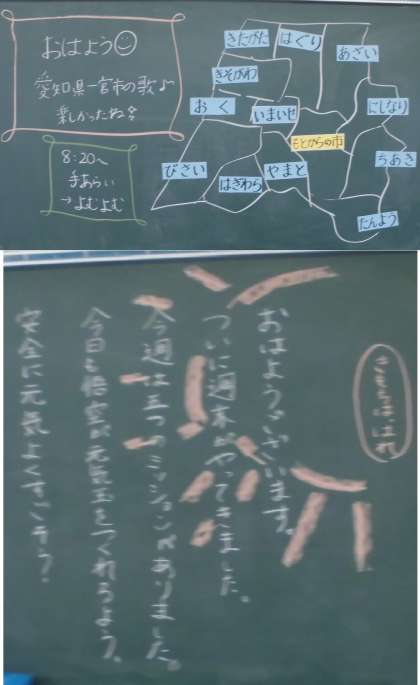 おはよう
愛知県一宮市の歌♪
楽しかったね
8:20〜
手あらい
→よむよむ
きたがた
はぐり
あざい
きそがわ
おく
いまいせ
にしなり
もとからの市
びさい
はぎわら
やまと
うあさ
たんよう
きもちはは れ
おはようございます。
ついに週末がやってきました。
今週は五つのミッションがありました。
今日も悟空が元気玉をつくれるよう、
安全に元気よくすごそう!